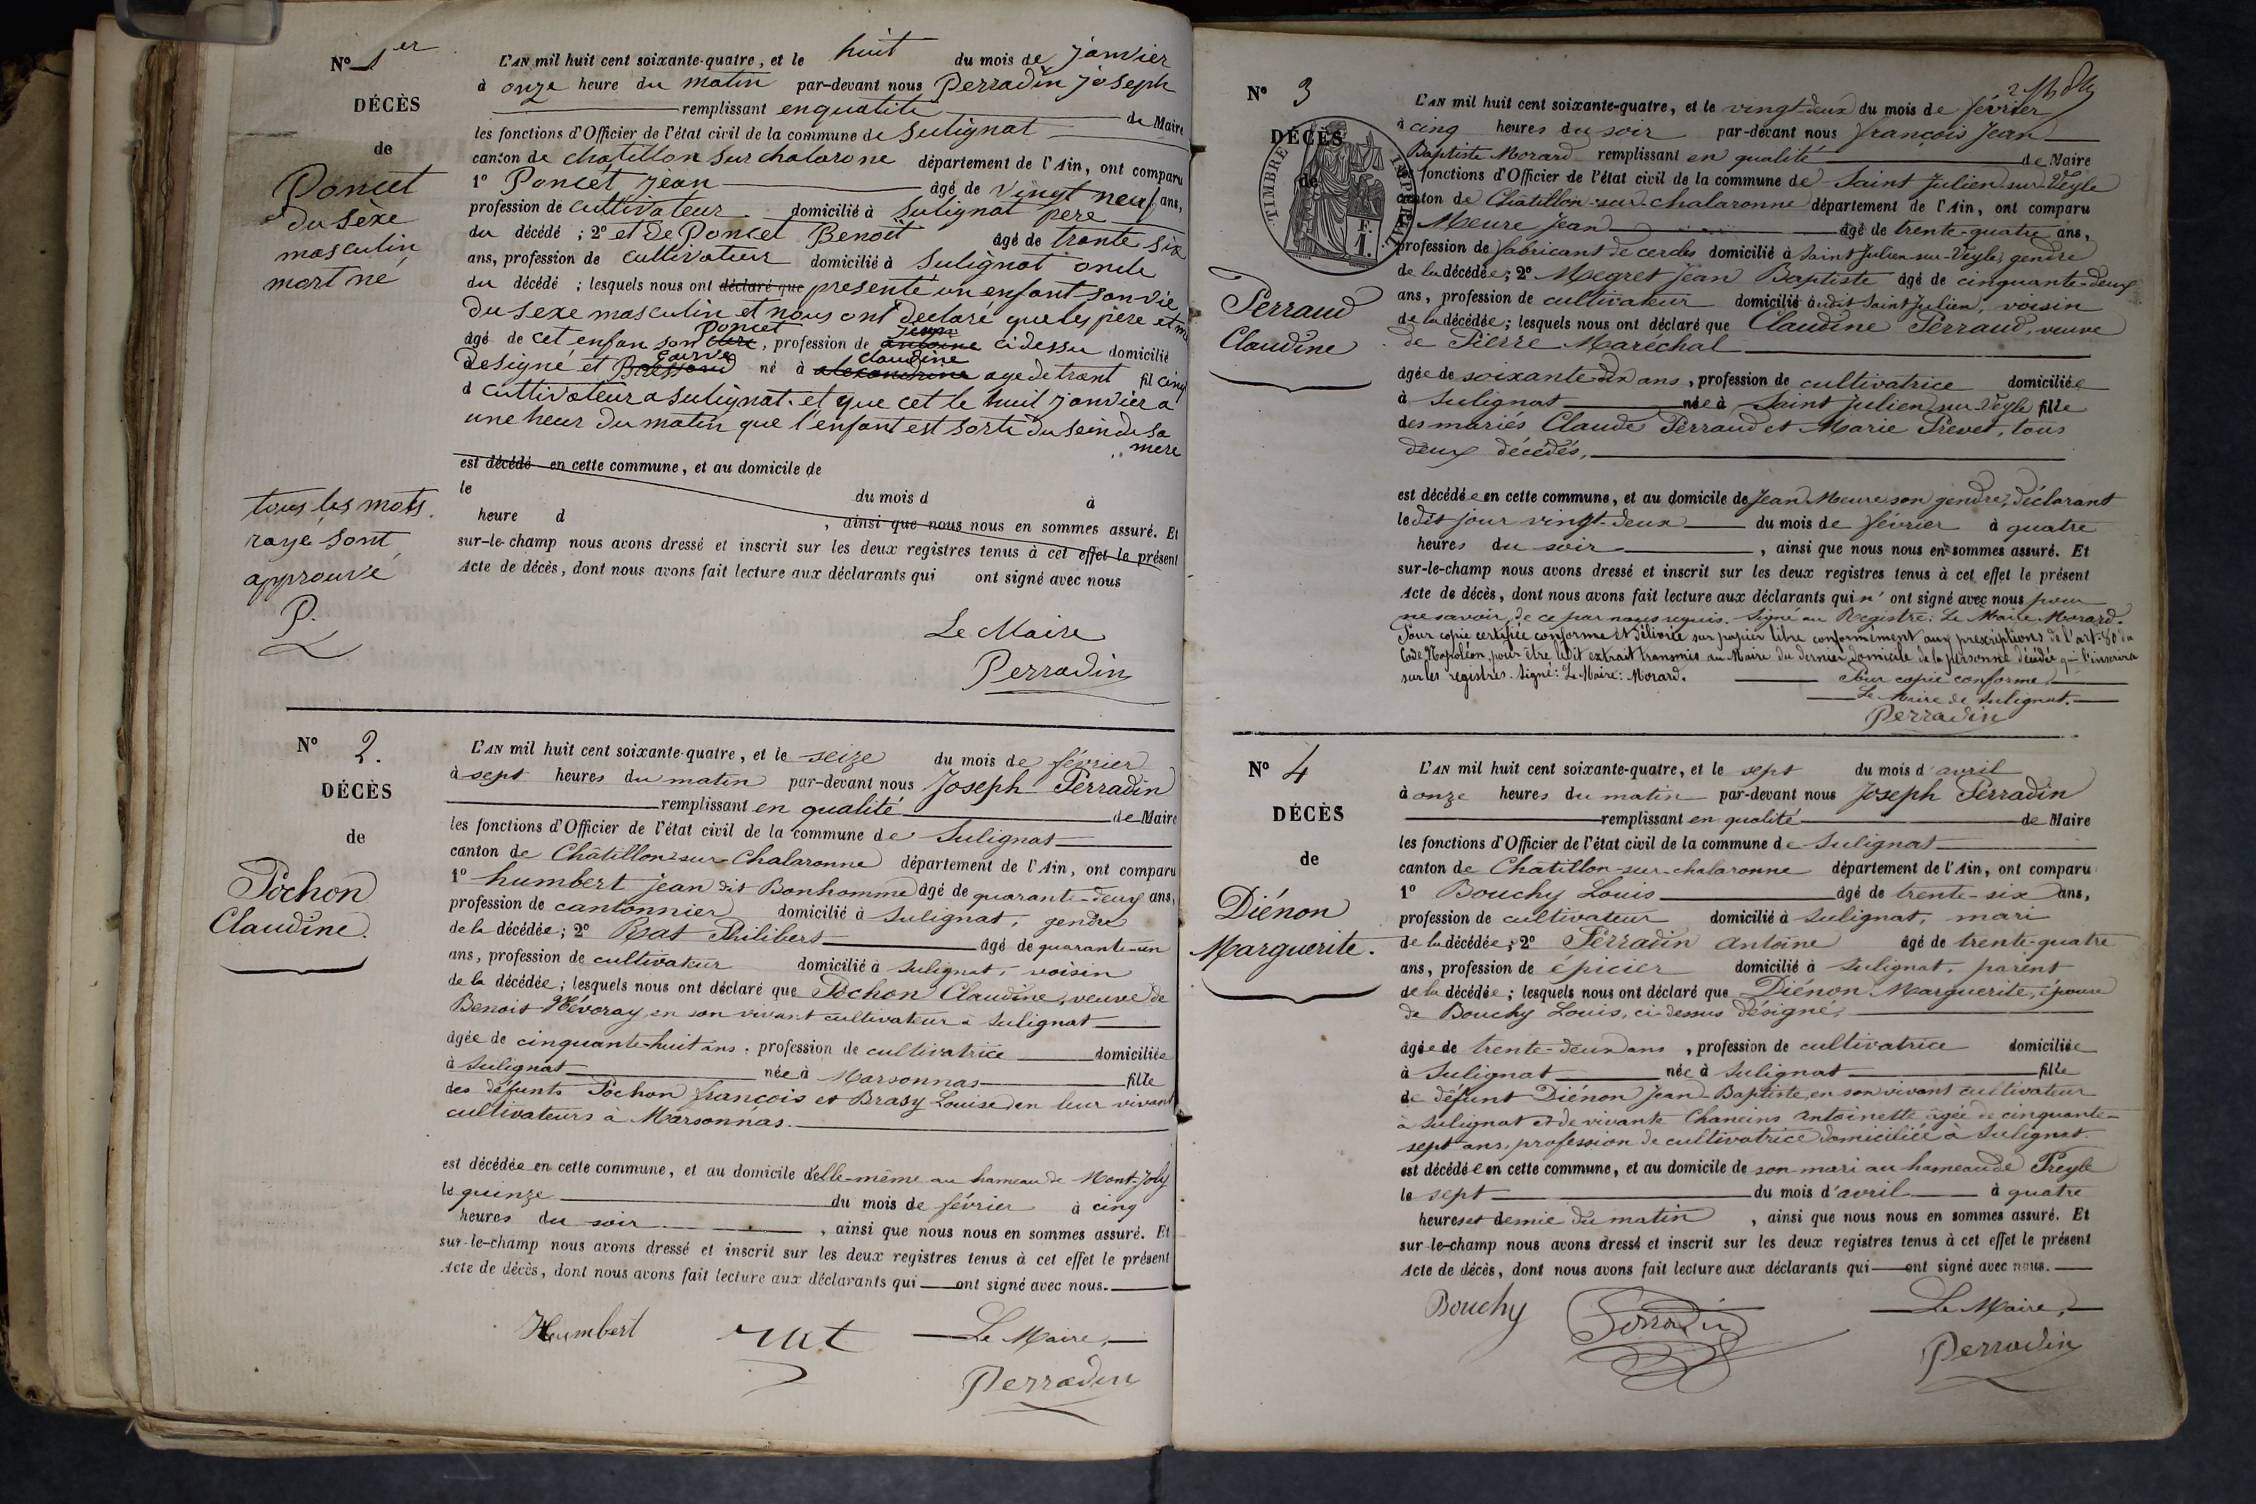 No 1er
DÉCÈS
de
Poncet
du sèxe
masculin
mort né
L'AN mil huit cent soixante-quatre, et le huit du mois de janvier
à onze heure du matin par-devant nous Perradin joseph
remplissant enqualité de Maire
les fonctions d'Officier de l'état civil de la commune de Sulignat
canton de chatillon sur chalarone département de l'Ain, ont comparu
1º Poncet jean âgé de vingt neuf ans,
profession de cultivateur domicilié à Sulignat pere
du décédé ; 2º et de Poncet Benoit âgé de trante six
ans, profession de cultivateur domicilié à Sulignat oncle
du décédé ; lesquels nous ont déclaré que presenté un enfant sanvie
du sexe masculin et nous ont declaré que les père et
Poncet jean
âgé de cet enfan son, profession de antoine cidessu domicilié
claudine
designé et né à alexandrine age de trant fil cinq
d cultivateur a sulignat. et que cet le huit janvier a
une heur du matin que l'enfant est sorti du sein de sa
mere
est décédé en cette commune, et au domicile de
le du mois d à
heure d , ainsi que nous nous en sommes assuré. Et
sur-le-champ nous avons dressé et inscrit sur les deux registres tenus à cet effet le présent
Acte de décès, dont nous avons fait lecture aux déclarants qui ont signé avec nous
tous les mots
rayé sont
approuvé
P.
Le Maire
Perradin
No 2.
DÉCÈS
de
Pochon
Claudine.
L'AN mil huit cent soixante-quatre, et le seize du mois de février
à sept heures du matin par-devant nous Joseph Perradin
remplissant en qualité de Maire
les fonctions d'Officier de l'état civil de la commune de Sulignat
canton de Châtillon-sur-Chalaronne département de l'Ain, ont comparu
1º humbert jean dit Bonhomme âgé de quarante-deux ans,
profession de cantonnier domicilié à Sulignat, gendre
de la décédée; 2º Rat Philibert âgé de quarante-un
ans, profession de cultivateur domicilié à Sulignat, voisin
de la décédée; lesquels nous ont déclaré que Pochon Claudine, veuve de
Benoit Névoray, en son vivant cultivateur à Sulignat
âgée de cinquante-huit ans, profession de cultivatrice domiciliée
à Sulignat née à Marsonnas fille
des défunts Pochon françois et Brasy Louise en leur vivant
cultivateurs à Marsonnas.
est décédée en cette commune, et au domicile d'elle-même au hameau de Mont-Joly
le quinze du mois de février à cinq
heures du soir , ainsi que nous nous en sommes assuré. Et
sur-le-champ nous avons dressé et inscrit sur les deux registres tenus à cet effet le présent
Acte de décès, dont nous avons fait lecture aux déclarants qui ont signé avec nous.
Humbert rat Le Maire,
Perradin
No 3
DÉCÈS
de
TIMBRE IMPÉRIAL
F. 1.
Perraud
Claudine
L'AN mil huit cent soixante-quatre, et le vingt-deux du mois de février
à cinq heures du soir par-devant nous françois Jean
Baptiste Morard remplissant en qualité de Maire
les fonctions d'Officier de l'état civil de la commune de Saint Julien-sur-Veyle
canton de Châtillon-sur-chalaronne département de l'Ain, ont comparu
1º Meure Jean âgé de trente-quatre ans,
profession de fabricant de cercles domicilié à Saint Julien-sur-Veyle, gendre
de la décédée; 2º Megret Jean Baptiste âgé de cinquante-deux
ans, profession de cultivateur domicilié audit Saint Julien, voisin
de la décédée; lesquels nous ont déclaré que Claudine Perraud, veuve
de Pierre Maréchal
âgée de soixante-dix ans, profession de cultivatrice domiciliée
à Sulignat née à Saint Julien-sur-Veyle fille
des mariés Claude Perraud et Marie Prevet, tous
deux décédés,
est décédée en cette commune, et au domicile de Jean Meure son gendre, déclarant
le dit jour vingt-deux du mois de février à quatre
heures du soir , ainsi que nous nous en sommes assuré. Et
sur-le-champ nous avons dressé et inscrit sur les deux registres tenus à cet effet le présent
Acte de décès, dont nous avons fait lecture aux déclarants qui n'ont signé avec nous pour
ne savoir, de ce par nous requis. Signé au Registre: Le Maire Morard.
Pour copie certifiée conforme et délivrée sur papier libre conformément aux prescriptions de l'art. 80 du
Code Napoléon, pour être ledit extrait transmis au Maire du dernier domicile de la personne décédée qui l'inscrira
sur les registres. Signé: Le Maire: Morard. Pour copie conforme
Le Maire de Sulignat.
Perradin
No 4
DÉCÈS
de
Diénon
Marguerite.
L'AN mil huit cent soixante-quatre, et le sept du mois d'avril
à onze heures du matin par-devant nous Joseph Perradin
remplissant en qualité de Maire
les fonctions d'Officier de l'état civil de la commune de Sulignat
canton de Châtillon-sur-chalaronne département de l'Ain, ont comparu
1º Bouchy Louis âgé de trente-six ans,
profession de cultivateur domicilié à Sulignat, mari
de la décédée; 2º Perradin antoine âgé de trente-quatre
ans, profession de épicier domicilié à Sulignat, parent
de la décédée; lesquels nous ont déclaré que Diénon Marguerite, épouse
de Bouchy Louis, ci-dessus désigné,
âgée de trente-deux ans, profession de cultivatrice domiciliée
à Sulignat née à Sulignat fille
de défunt Diénon Jean-Baptiste, en son vivant cultivateur
à Sulignat et de vivante Chaneins Antoinette âgée de cinquante-
sept ans, profession de cultivatrice domiciliée à Sulignat.
est décédée en cette commune, et au domicile de son mari au hameau de Preyle
le sept du mois d'avril à quatre
heures et demie du matin , ainsi que nous nous en sommes assuré. Et
sur-le-champ nous avons dressé et inscrit sur les deux registres tenus à cet effet le présent
Acte de décès, dont nous avons fait lecture aux déclarants qui ont signé avec nous.
Bouchy Perradin Le Maire,
Perradin